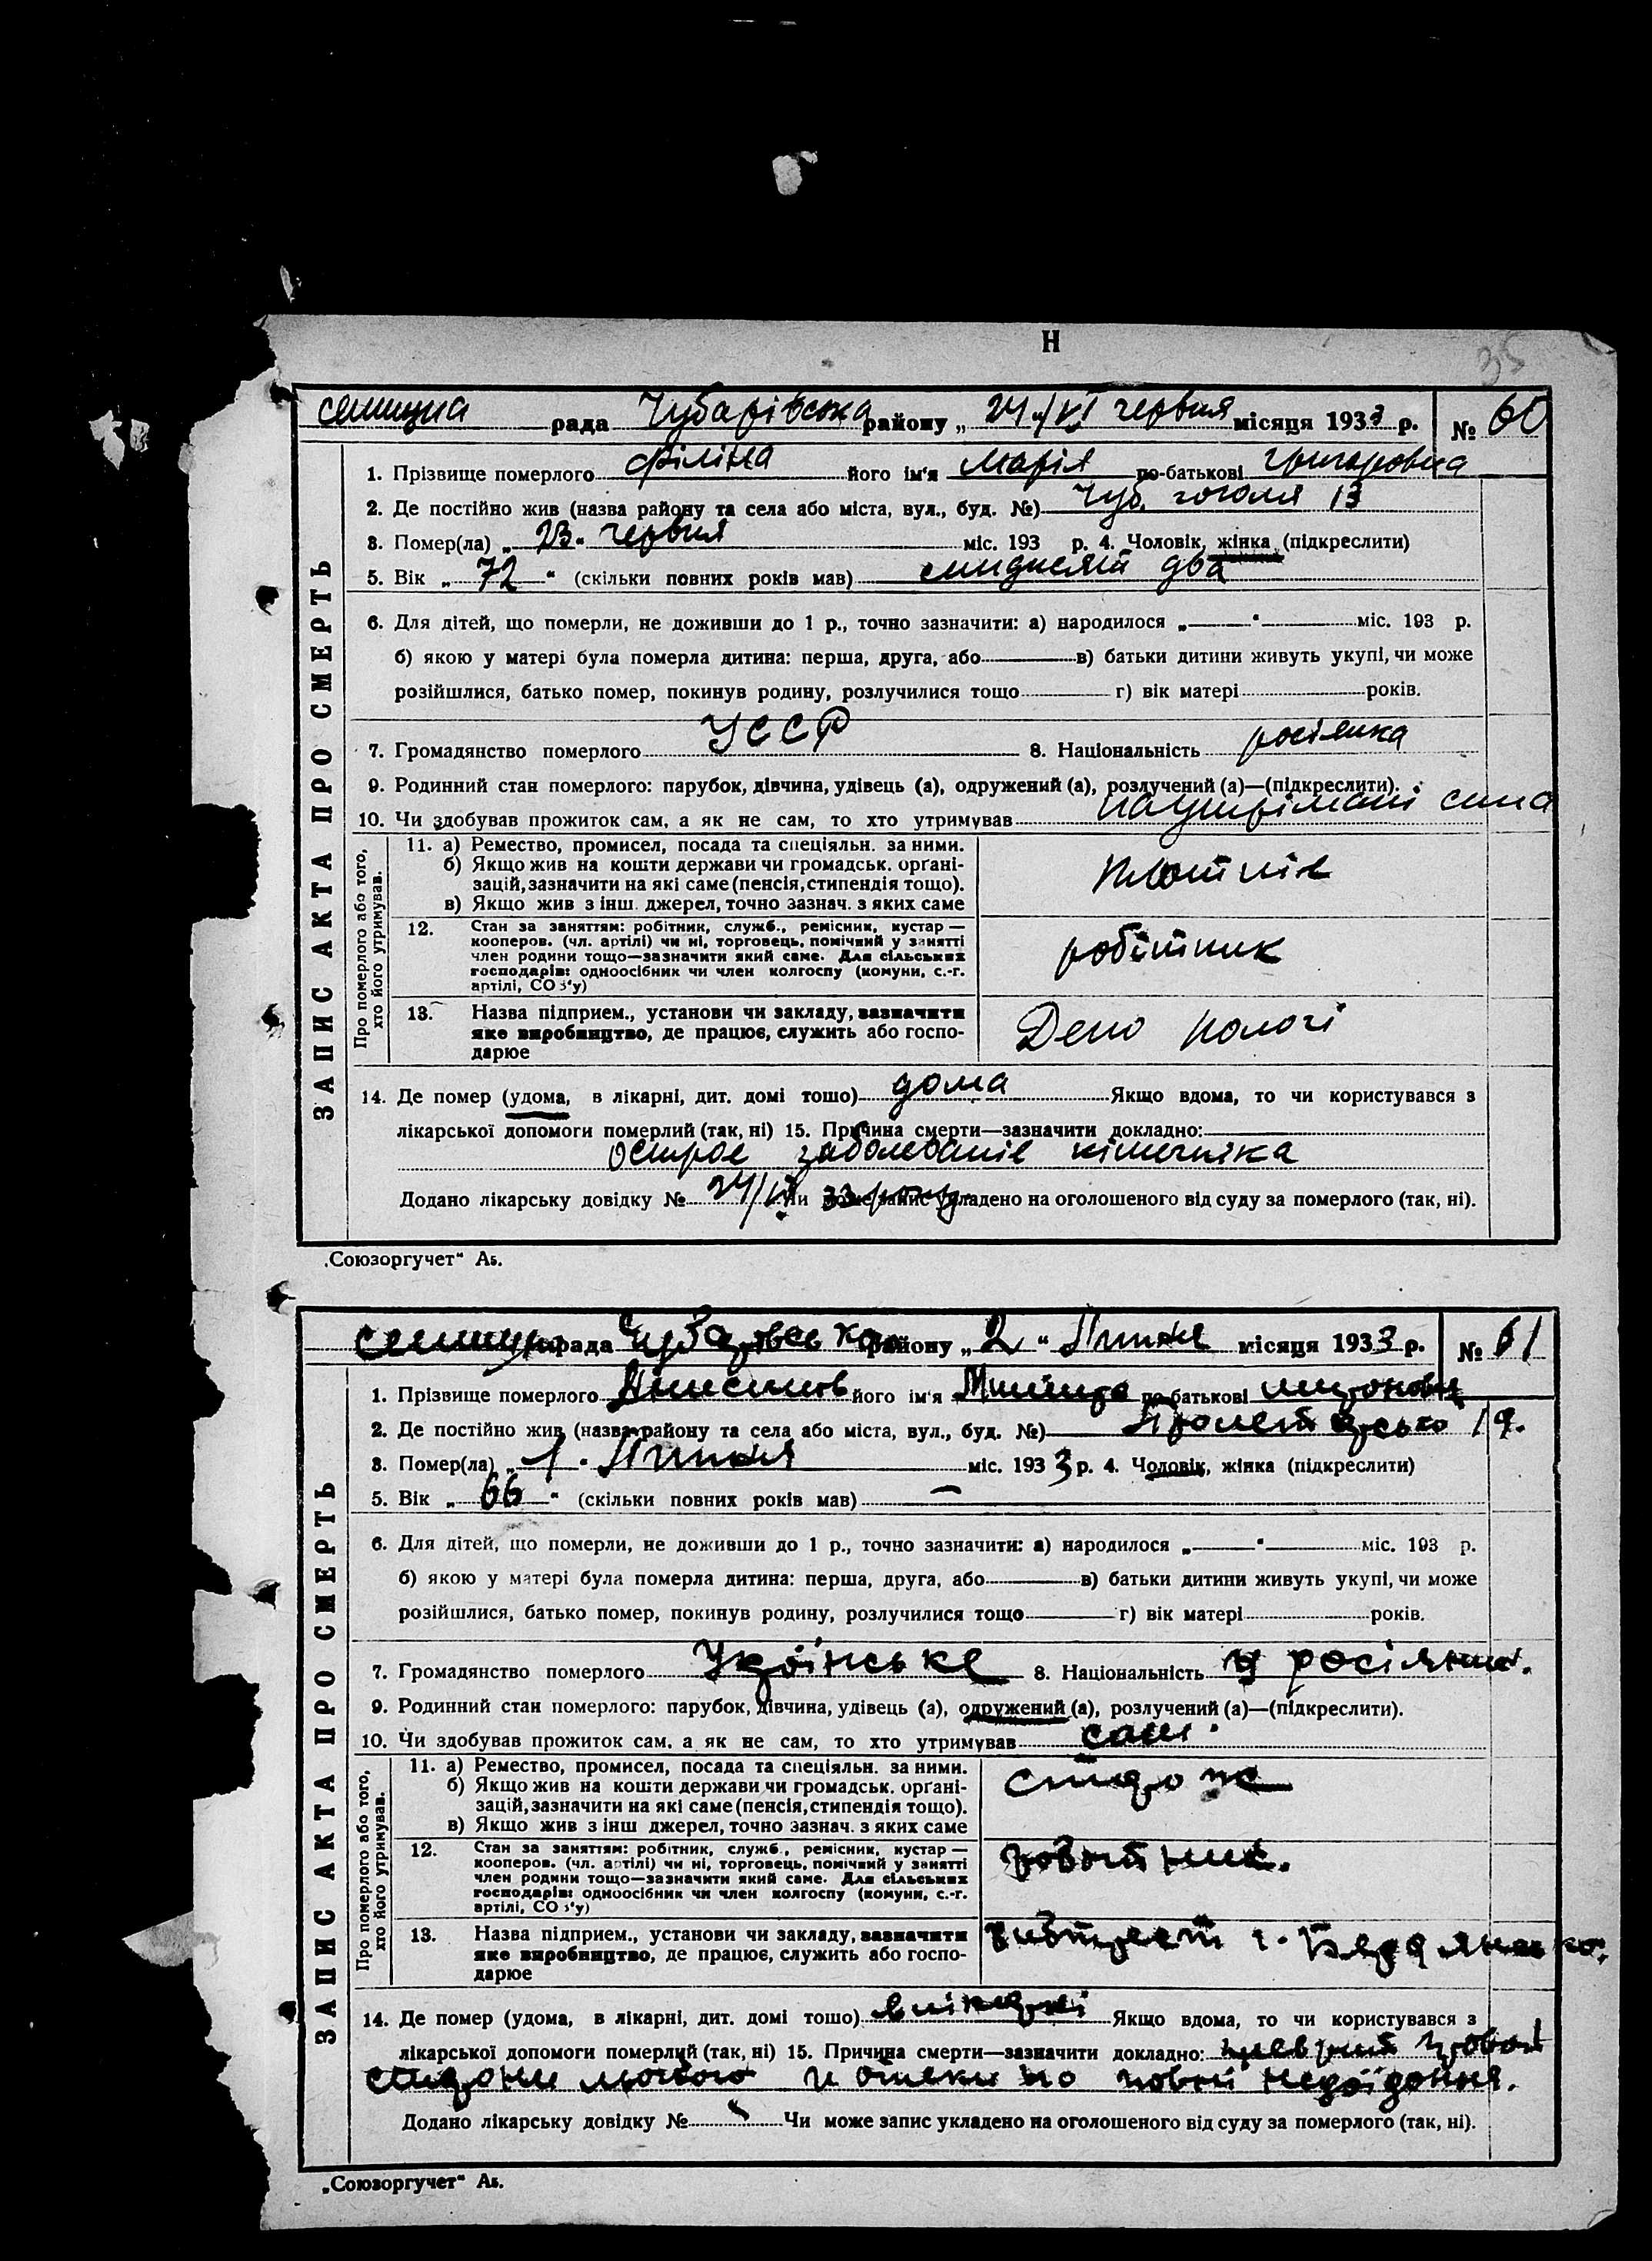 Н
35
рада Чубарівська району „ 24/VI червня місяця 1933 р. № 60
ЗАПИС АКТА ПРО СМЕРТЬ
1. Прізвище померлого Філіна його ім'я Марія по-батькові Григоровна
2. Де постійно жив (назва району та села або міста, вул., буд. №) Чуб. гоголя 13
3. Помер(ла) „ 23 " червня міс. 193 р. 4. Чоловік, жінка (підкреслити)
5. Вік „ 72 " (скільки повних років мав) симдисят два
6. Для дітей, що померли, не доживши до 1 р., точно зазначити: а) народилося „ " міс. 193 р.
б) якою у матері була померла дитина: перша, друга, або в) батьки дитини живуть укупі, чи може
розійшлися, батько помер, покинув родину, розлучилися тощо г) вік матері років.
7. Громадянство померлого УССР 8. Національність росіянка
9. Родинний стан померлого: парубок, дівчина, удівець (а), одружений (а), розлучений (а)—(підкреслити).
10. Чи здобував прожиток сам, а як не сам, то хто утримував на утрімані сина
Про померлого або того, хто його утримував.
11. а) Ремество, промисел, посада та спеціяльн. за ними.
б) Якщо жив на кошти держави чи громадськ. орґані-
зацій, зазначити на які саме (пенсія, стипендія тощо).
в) Якщо жив з інш. джерел, точно зазнач. з яких саме
12. Стан за заняттям: робітник, служб., ремісник, кустар —
кооперов. (чл. артілі) чи ні, торговець, помічний у занятті
член родини тощо—зазначити який саме. Для сільських
господарів: одноосібник чи член колгоспу (комуни, с.-г.
артілі, СОЗ'у)
робітник
13. Назва підприєм., установи чи закладу, зазначити
яке виробництво, де працює, служить або госпо-
дарює
Депо пологі
14. Де помер (удома, в лікарні, дит. домі тощо) дома Якщо вдома, то чи користувався з
лікарської допомоги померлий (так, ні) 15. Причина смерти—зазначити докладно:
острое заболеваніе кішечніка
Додано лікарську довідку № 24/VI Чи 33 року може запис укладено на оголошеного від суду за померлого (так, ні).
„Союзоргучет" Аs.
рада Чубарівська району „ 2 " Липня місяця 1933 р. № 61
ЗАПИС АКТА ПРО СМЕРТЬ
1. Прізвище померлого його ім'я по-батькові
2. Де постійно жив (назва району та села або міста, вул., буд. №) Пролетарсько 19.
3. Помер(ла) „ 1 " Липня міс. 1933 р. 4. Чоловік, жінка (підкреслити)
5. Вік „ 66 " (скільки повних років мав) —
6. Для дітей, що померли, не доживши до 1 р., точно зазначити: а) народилося „ " міс. 193 р.
б) якою у матері була померла дитина: перша, друга, або в) батьки дитини живуть укупі, чи може
розійшлися, батько помер, покинув родину, розлучилися тощо г) вік матері років.
7. Громадянство померлого Украінське 8. Національність росіянин.
9. Родинний стан померлого: парубок, дівчина, удівець (а), одружений (а), розлучений (а)—(підкреслити).
10. Чи здобував прожиток сам, а як не сам, то хто утримував сам.
Про померлого або того, хто його утримував.
11. а) Ремество, промисел, посада та спеціяльн. за ними.
б) Якщо жив на кошти держави чи громадськ. орґані-
зацій, зазначити на які саме (пенсія, стипендія тощо).
в) Якщо жив з інш. джерел, точно зазнач. з яких саме
сторож
12. Стан за заняттям: робітник, служб., ремісник, кустар —
кооперов. (чл. артілі) чи ні, торговець, помічний у занятті
член родини тощо—зазначити який саме. Для сільських
господарів: одноосібник чи член колгоспу (комуни, с.-г.
артілі, СОЗ'у)
13. Назва підприєм., установи чи закладу, зазначити
яке виробництво, де працює, служить або госпо-
дарює
14. Де помер (удома, в лікарні, дит. домі тощо) в лікарні Якщо вдома, то чи користувався з
лікарської допомоги померлий (так, ні) 15. Причина смерти—зазначити докладно:
недоїдання.
Додано лікарську довідку № Чи може запис укладено на оголошеного від суду за померлого (так, ні).
„Союзоргучет" Аs.